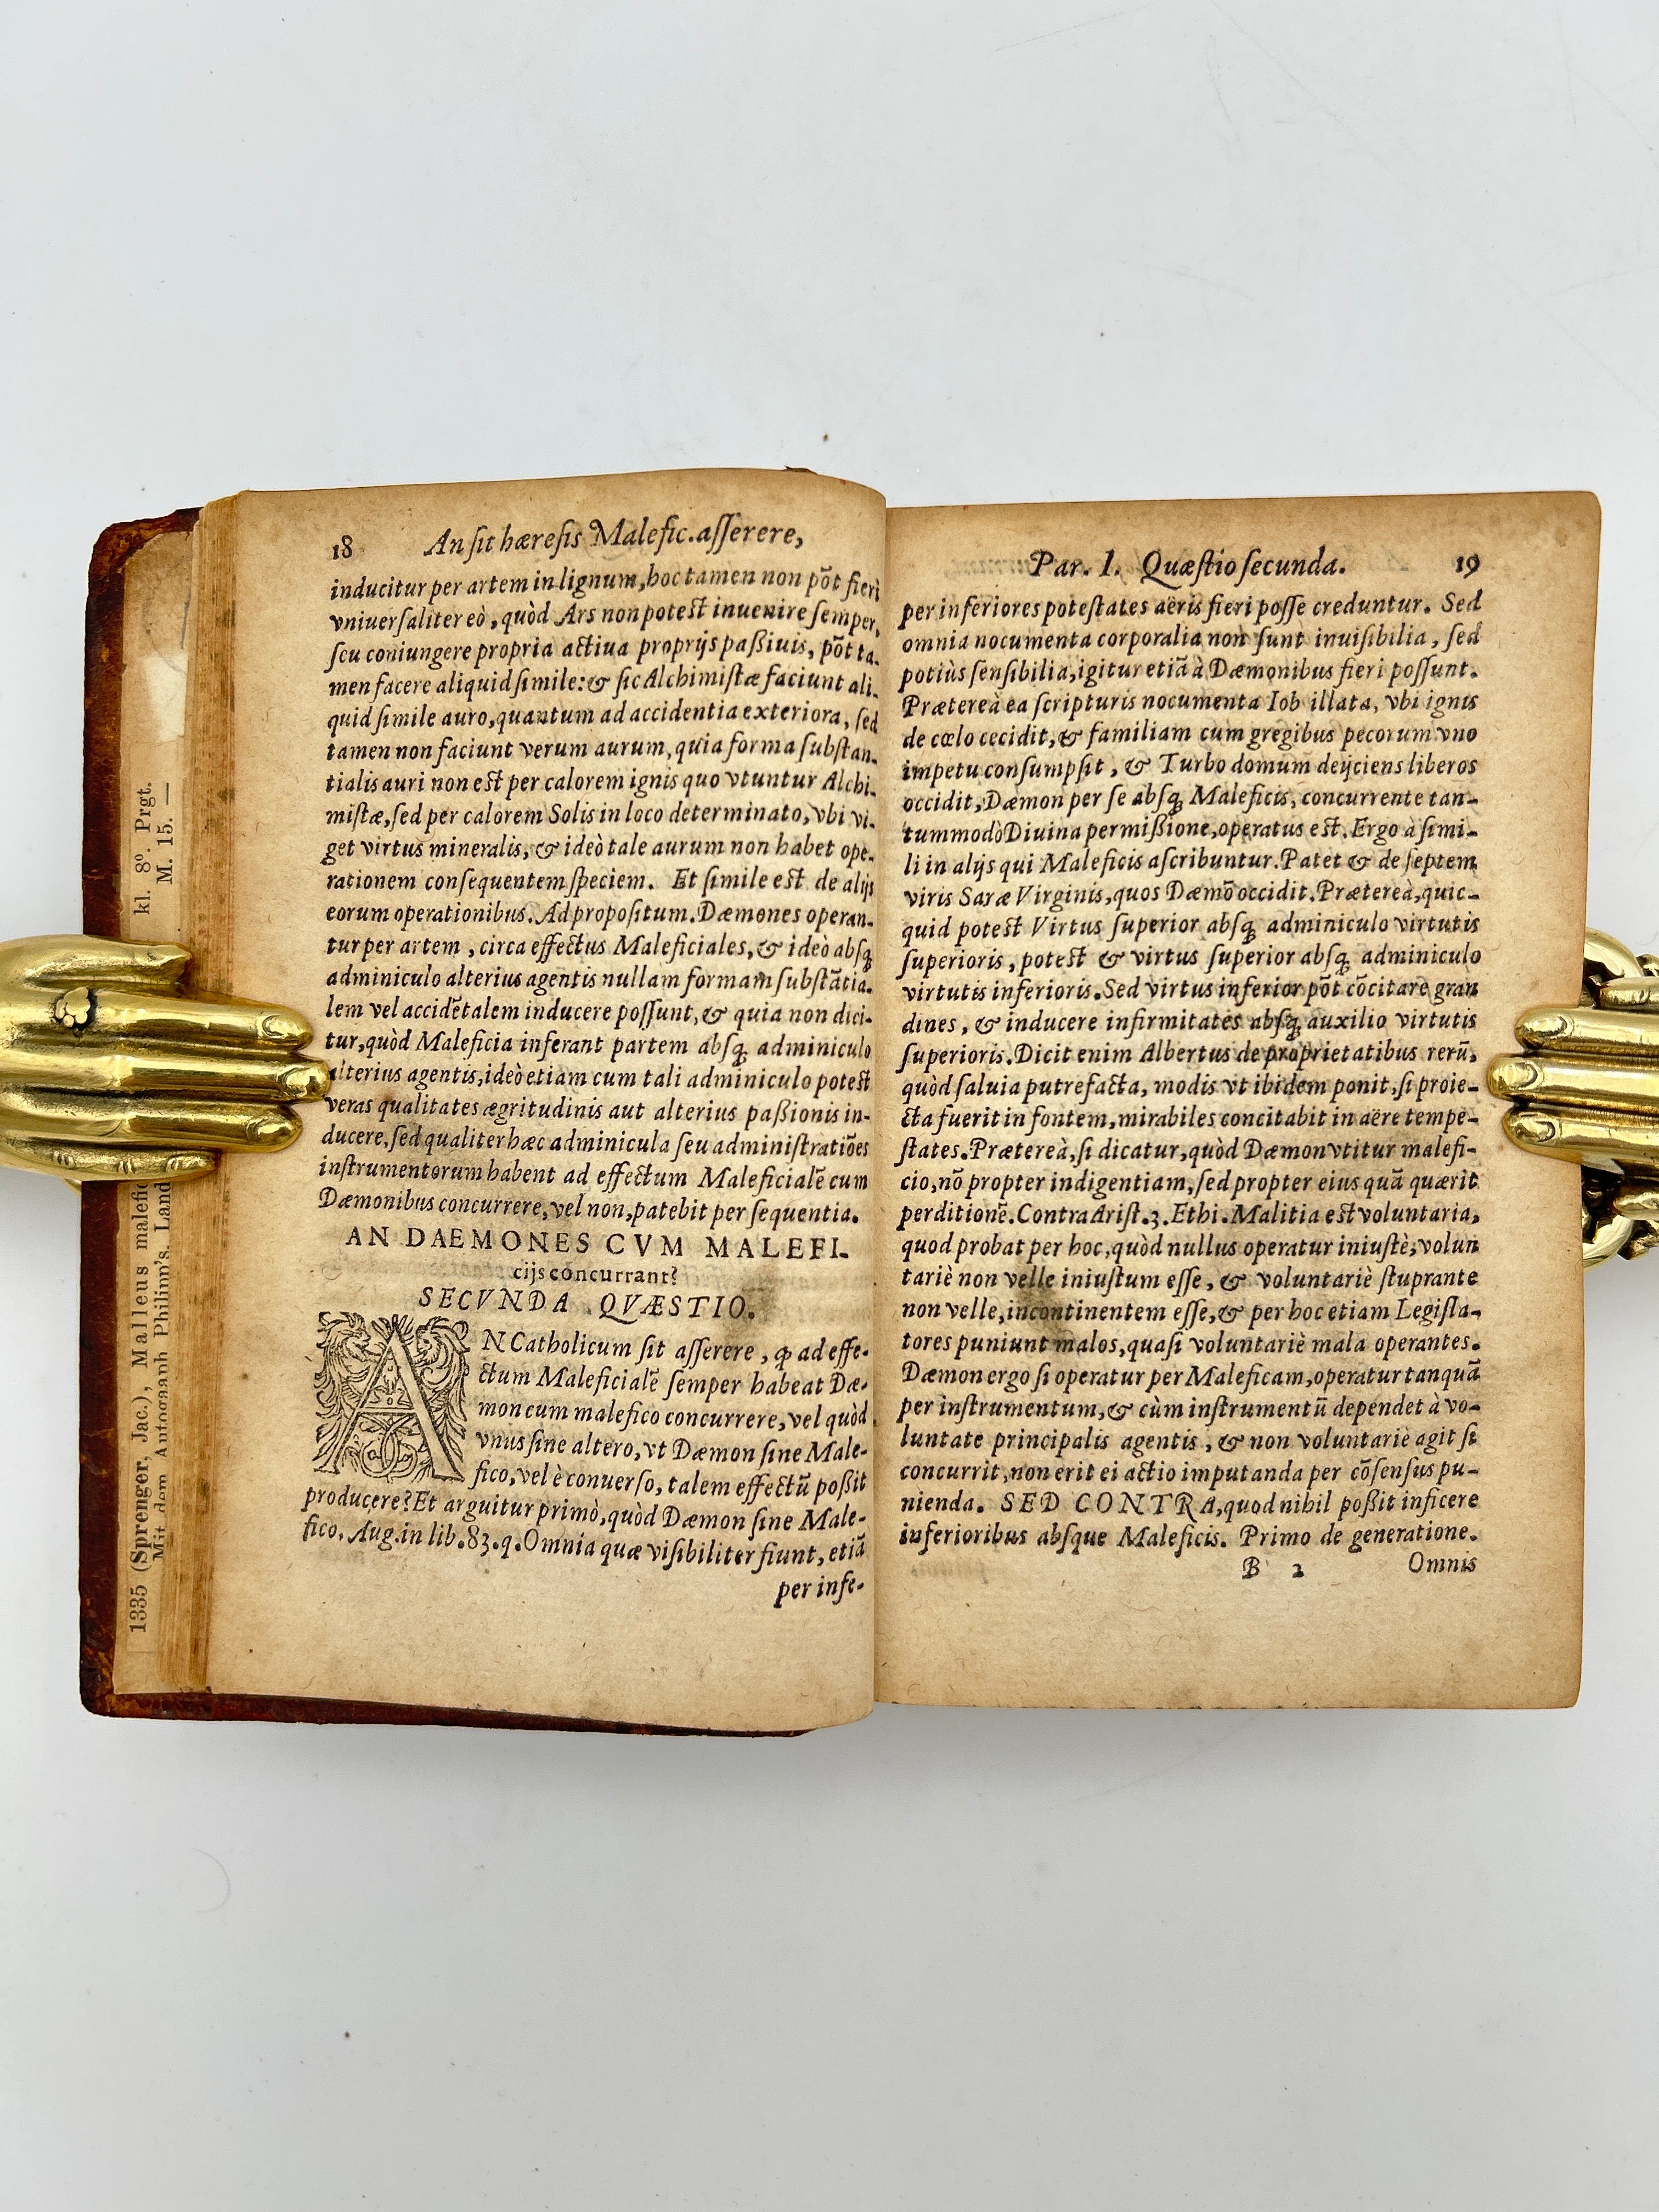 kl. 8º. Prgt.
M. 15. —
1335 (Sprenger, Jac.), Malleus malefic
Mit dem Autograph Philipp's. Land
18 An ſit hæreſis Malefic. aſſerere,
inducitur per artem in lignum, hoc tamen non põt fieri
vniuerſaliter eò, quòd Ars non poteſt inuenire ſemper,
ſeu coniungere propria actiua proprijs paßiuis, põt ta-
men facere aliquid ſimile: & ſic Alchimiſtæ faciunt ali-
quid ſimile auro, quantum ad accidentia exteriora, ſed
tamen non faciunt verum aurum, quia forma ſubſtan-
tialis auri non eſt per calorem ignis quo vtuntur Alchi-
miſtæ, ſed per calorem Solis in loco determinato, vbi vi-
get virtus mineralis, & ideò tale aurum non habet ope-
rationem conſequentem ſpeciem. Et ſimile eſt de alijs
eorum operationibus. Ad propoſitum. Dæmones operan-
tur per artem, circa effectus Maleficiales, & ideò abſq;
adminiculo alterius agentis nullam formam ſubſtãtia-
lem vel accidẽtalem inducere poſſunt, & quia non dici-
tur, quòd Maleficia inferant partem abſq; adminiculo
alterius agentis, ideò etiam cum tali adminiculo poteſt
veras qualitates ægritudinis aut alterius paßionis in-
ducere, ſed qualiter hæc adminicula ſeu adminiſtratiões
inſtrumentorum habent ad effectum Maleficialẽ cum
Dæmonibus concurrere, vel non, patebit per ſequentia.
AN DAEMONES CVM MALEFI-
cijs concurrant?
SECVNDA QVÆSTIO.
AN Catholicum ſit aſſerere, ꝙ ad effe-
ctum Maleficialẽ ſemper habeat Dæ-
mon cum malefico concurrere, vel quòd
vnus ſine altero, vt Dæmon ſine Male-
fico, vel è conuerſo, talem effectũ poßit
producere? Et arguitur primò, quòd Dæmon ſine Male-
fico. Aug. in lib. 83. q. Omnia quæ viſibiliter fiunt, etiã
per infe-
Par. I. Quæſtio ſecunda. 19
per inferiores poteſtates aëris fieri poſſe creduntur. Sed
omnia nocumenta corporalia non ſunt inuiſibilia, ſed
potiùs ſenſibilia, igitur etiã à Dæmonibus fieri poſſunt.
Prætereà ea ſcripturis nocumenta Iob illata, vbi ignis
de cœlo cecidit, & familiam cum gregibus pecorum vno
impetu conſumpſit, & Turbo domum deijciens liberos
occidit, Dæmon per ſe abſq; Maleficis, concurrente tan-
tummodò Diuina permißione, operatus eſt. Ergo à ſimi-
li in alijs qui Maleficis aſcribuntur. Patet & de ſeptem
viris Saræ Virginis, quos Dæmõ occidit. Prætereà, quic-
quid poteſt Virtus ſuperior abſq; adminiculo virtutis
ſuperioris, poteſt & virtus ſuperior abſq; adminiculo
virtutis inferioris. Sed virtus inferior põt cõcitare gran
dines, & inducere infirmitates abſq; auxilio virtutis
ſuperioris. Dicit enim Albertus de proprietatibus rerũ,
quòd ſaluia putrefacta, modis vt ibidem ponit, ſi proie-
cta fuerit in fontem, mirabiles concitabit in aëre tempe-
ſtates. Prætereà, ſi dicatur, quòd Dæmon vtitur malefi-
cio, nõ propter indigentiam, ſed propter eius quã quærit
perditionẽ. Contra Ariſt. 3. Ethi. Malitia eſt voluntaria,
quod probat per hoc, quòd nullus operatur iniuſtè, volun
tariè non velle iniuſtum eſſe, & voluntariè ſtuprante
non velle, incontinentem eſſe, & per hoc etiam Legiſla-
tores puniunt malos, quaſi voluntariè mala operantes.
Dæmon ergo ſi operatur per Maleficam, operatur tanquã
per inſtrumentum, & cùm inſtrumentũ dependet à vo-
luntate principalis agentis, & non voluntariè agit ſi
concurrit, non erit ei actio imputanda per cõſenſus pu-
nienda. SED CONTRA, quod nihil poßit inficere
inferioribus abſque Maleficis. Primo de generatione.
B 2 Omnis